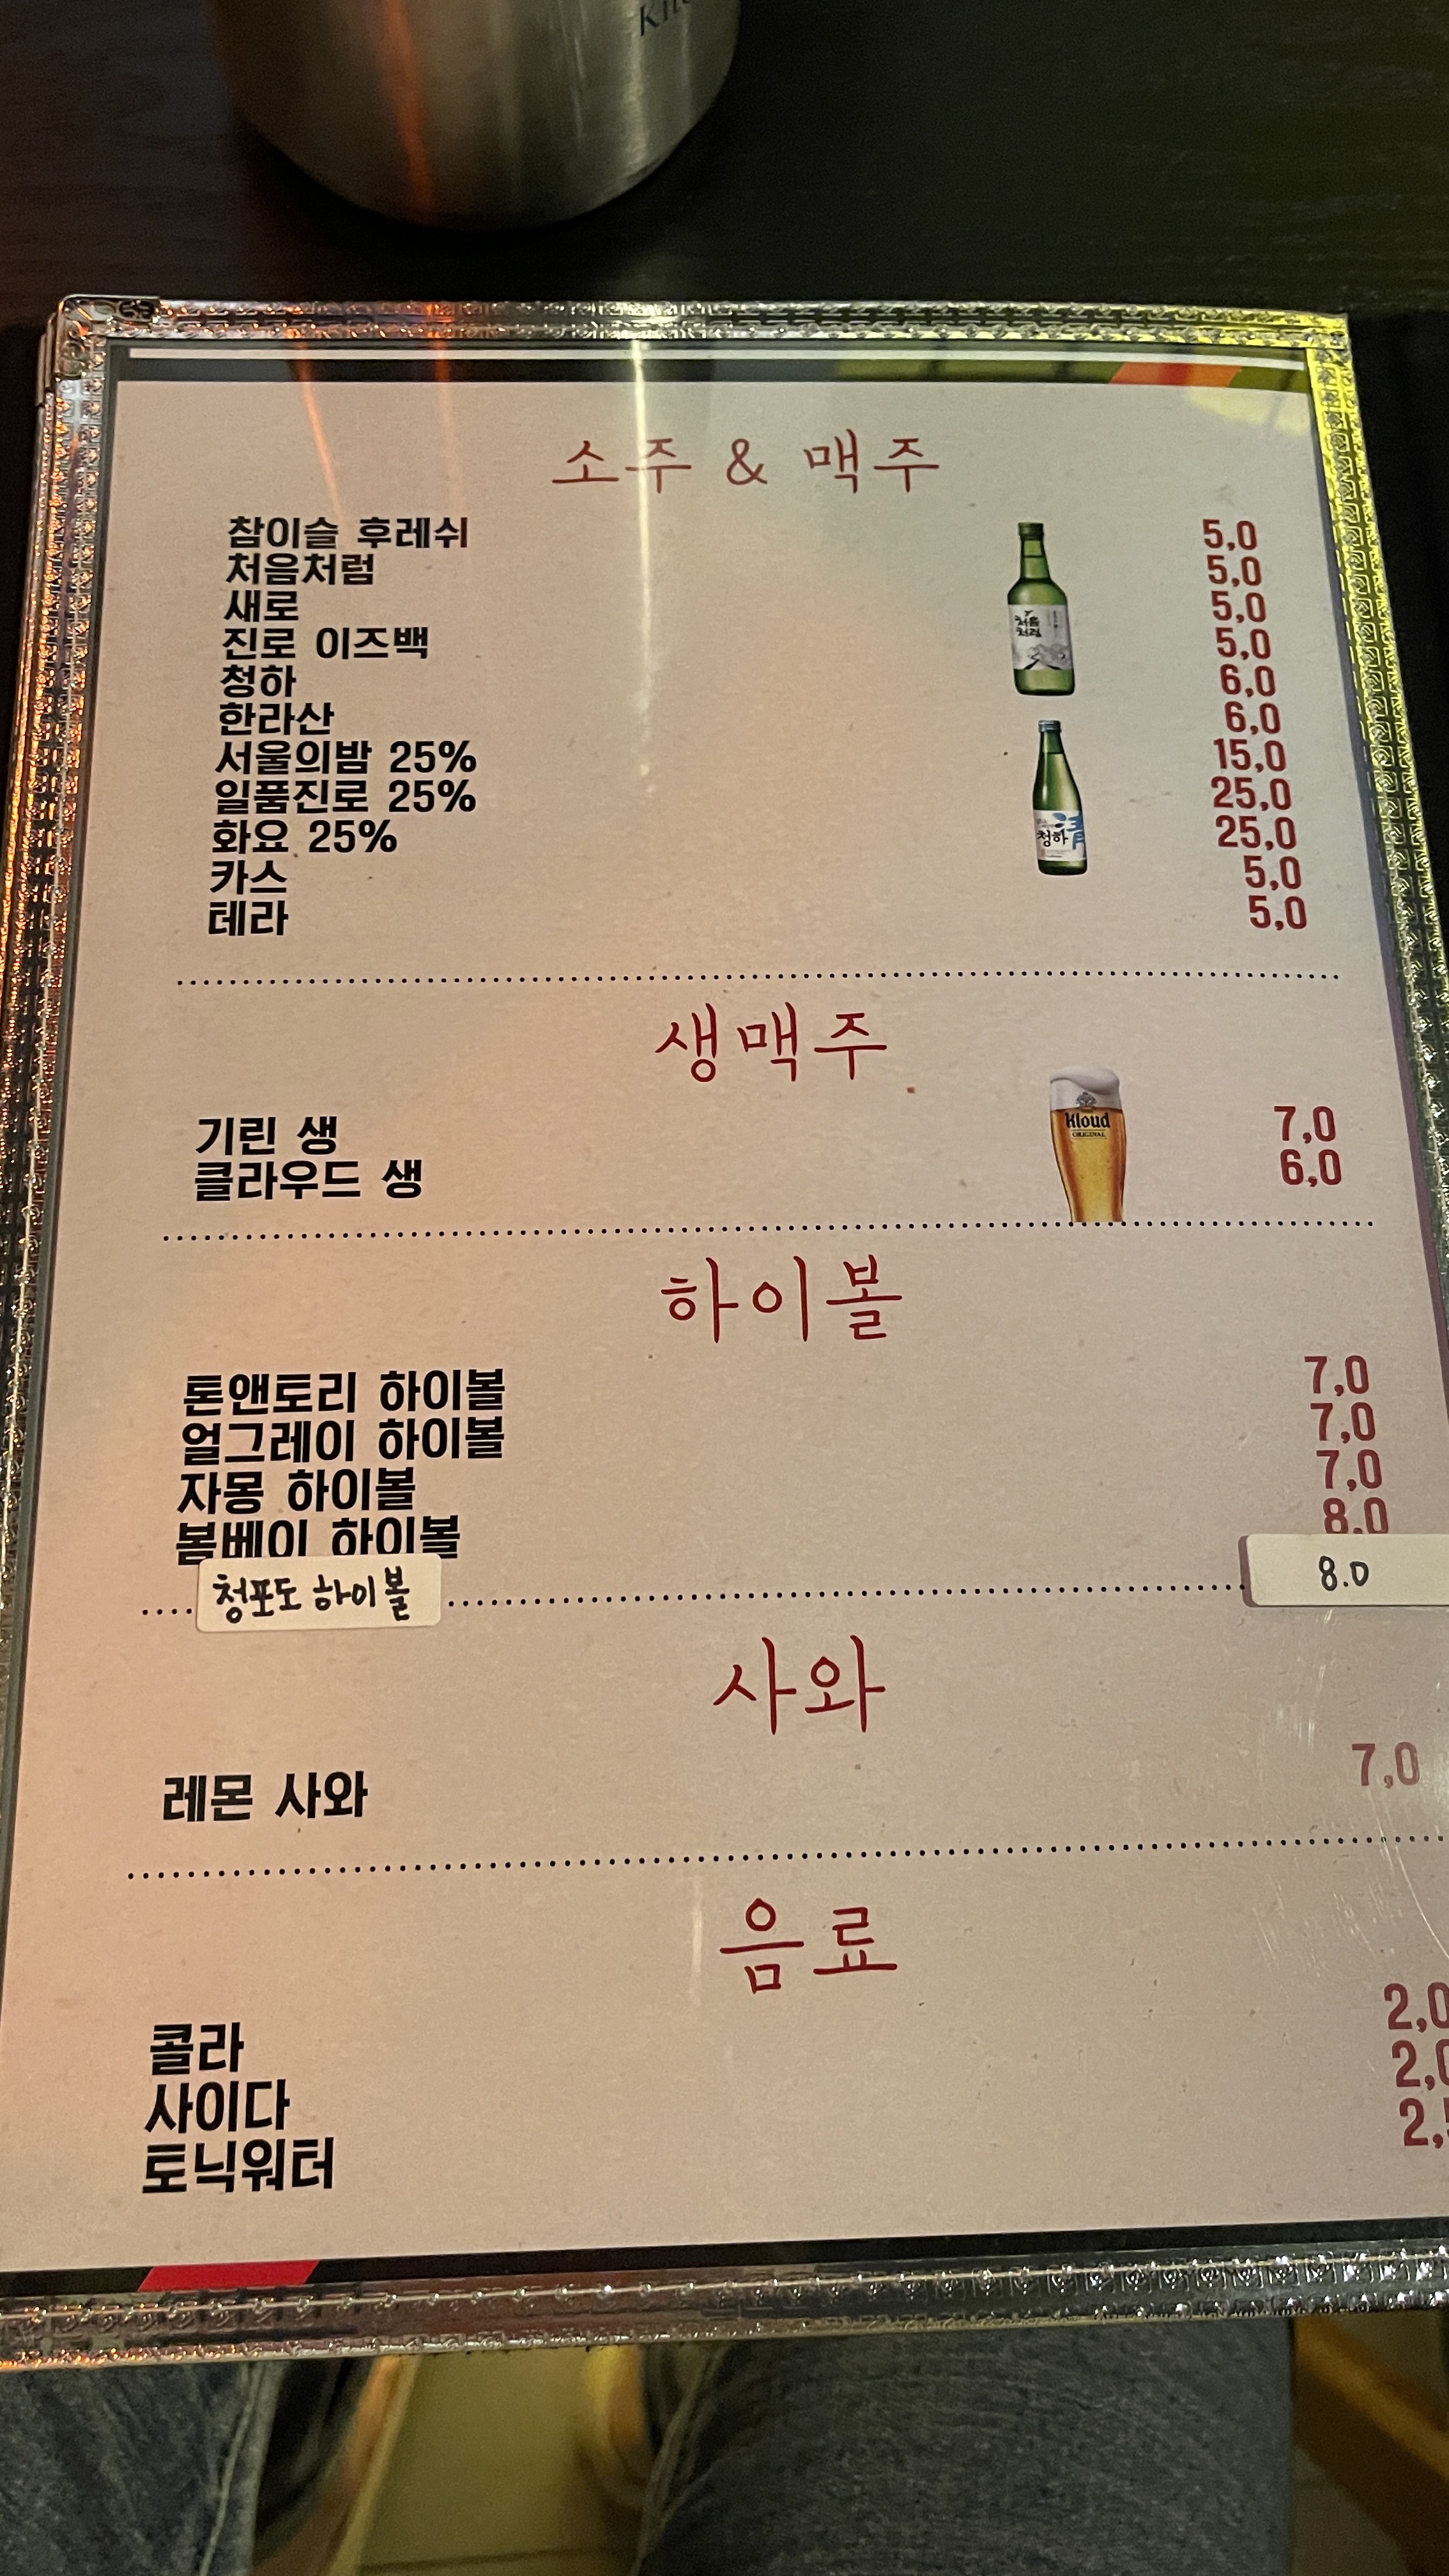 소주 & 맥주
참이슬 후레쉬 5,0
처음처럼 5,0
새로 5,0
진로 이즈백 5,0
청하 6,0
한라산 6,0
서울의밤 25% 15,0
일품진로 25% 25,0
화요 25% 25,0
카스 5,0
테라 5,0
처음
처럼
청하
생맥주
기린 생 7,0
클라우드 생 6,0
Kloud
ORIGINAL
하이볼
톤앤토리 하이볼 7,0
얼그레이 하이볼 7,0
자몽 하이볼 7,0
봄베이 하이볼 8,0
청포도 하이볼 8.0
사와
레몬 사와 7,0
음료
콜라 2,0
사이다 2,0
토닉워터 2,